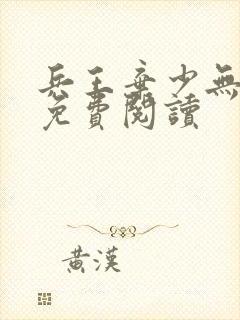 兵王棄少無
免費閱讀
黃漢